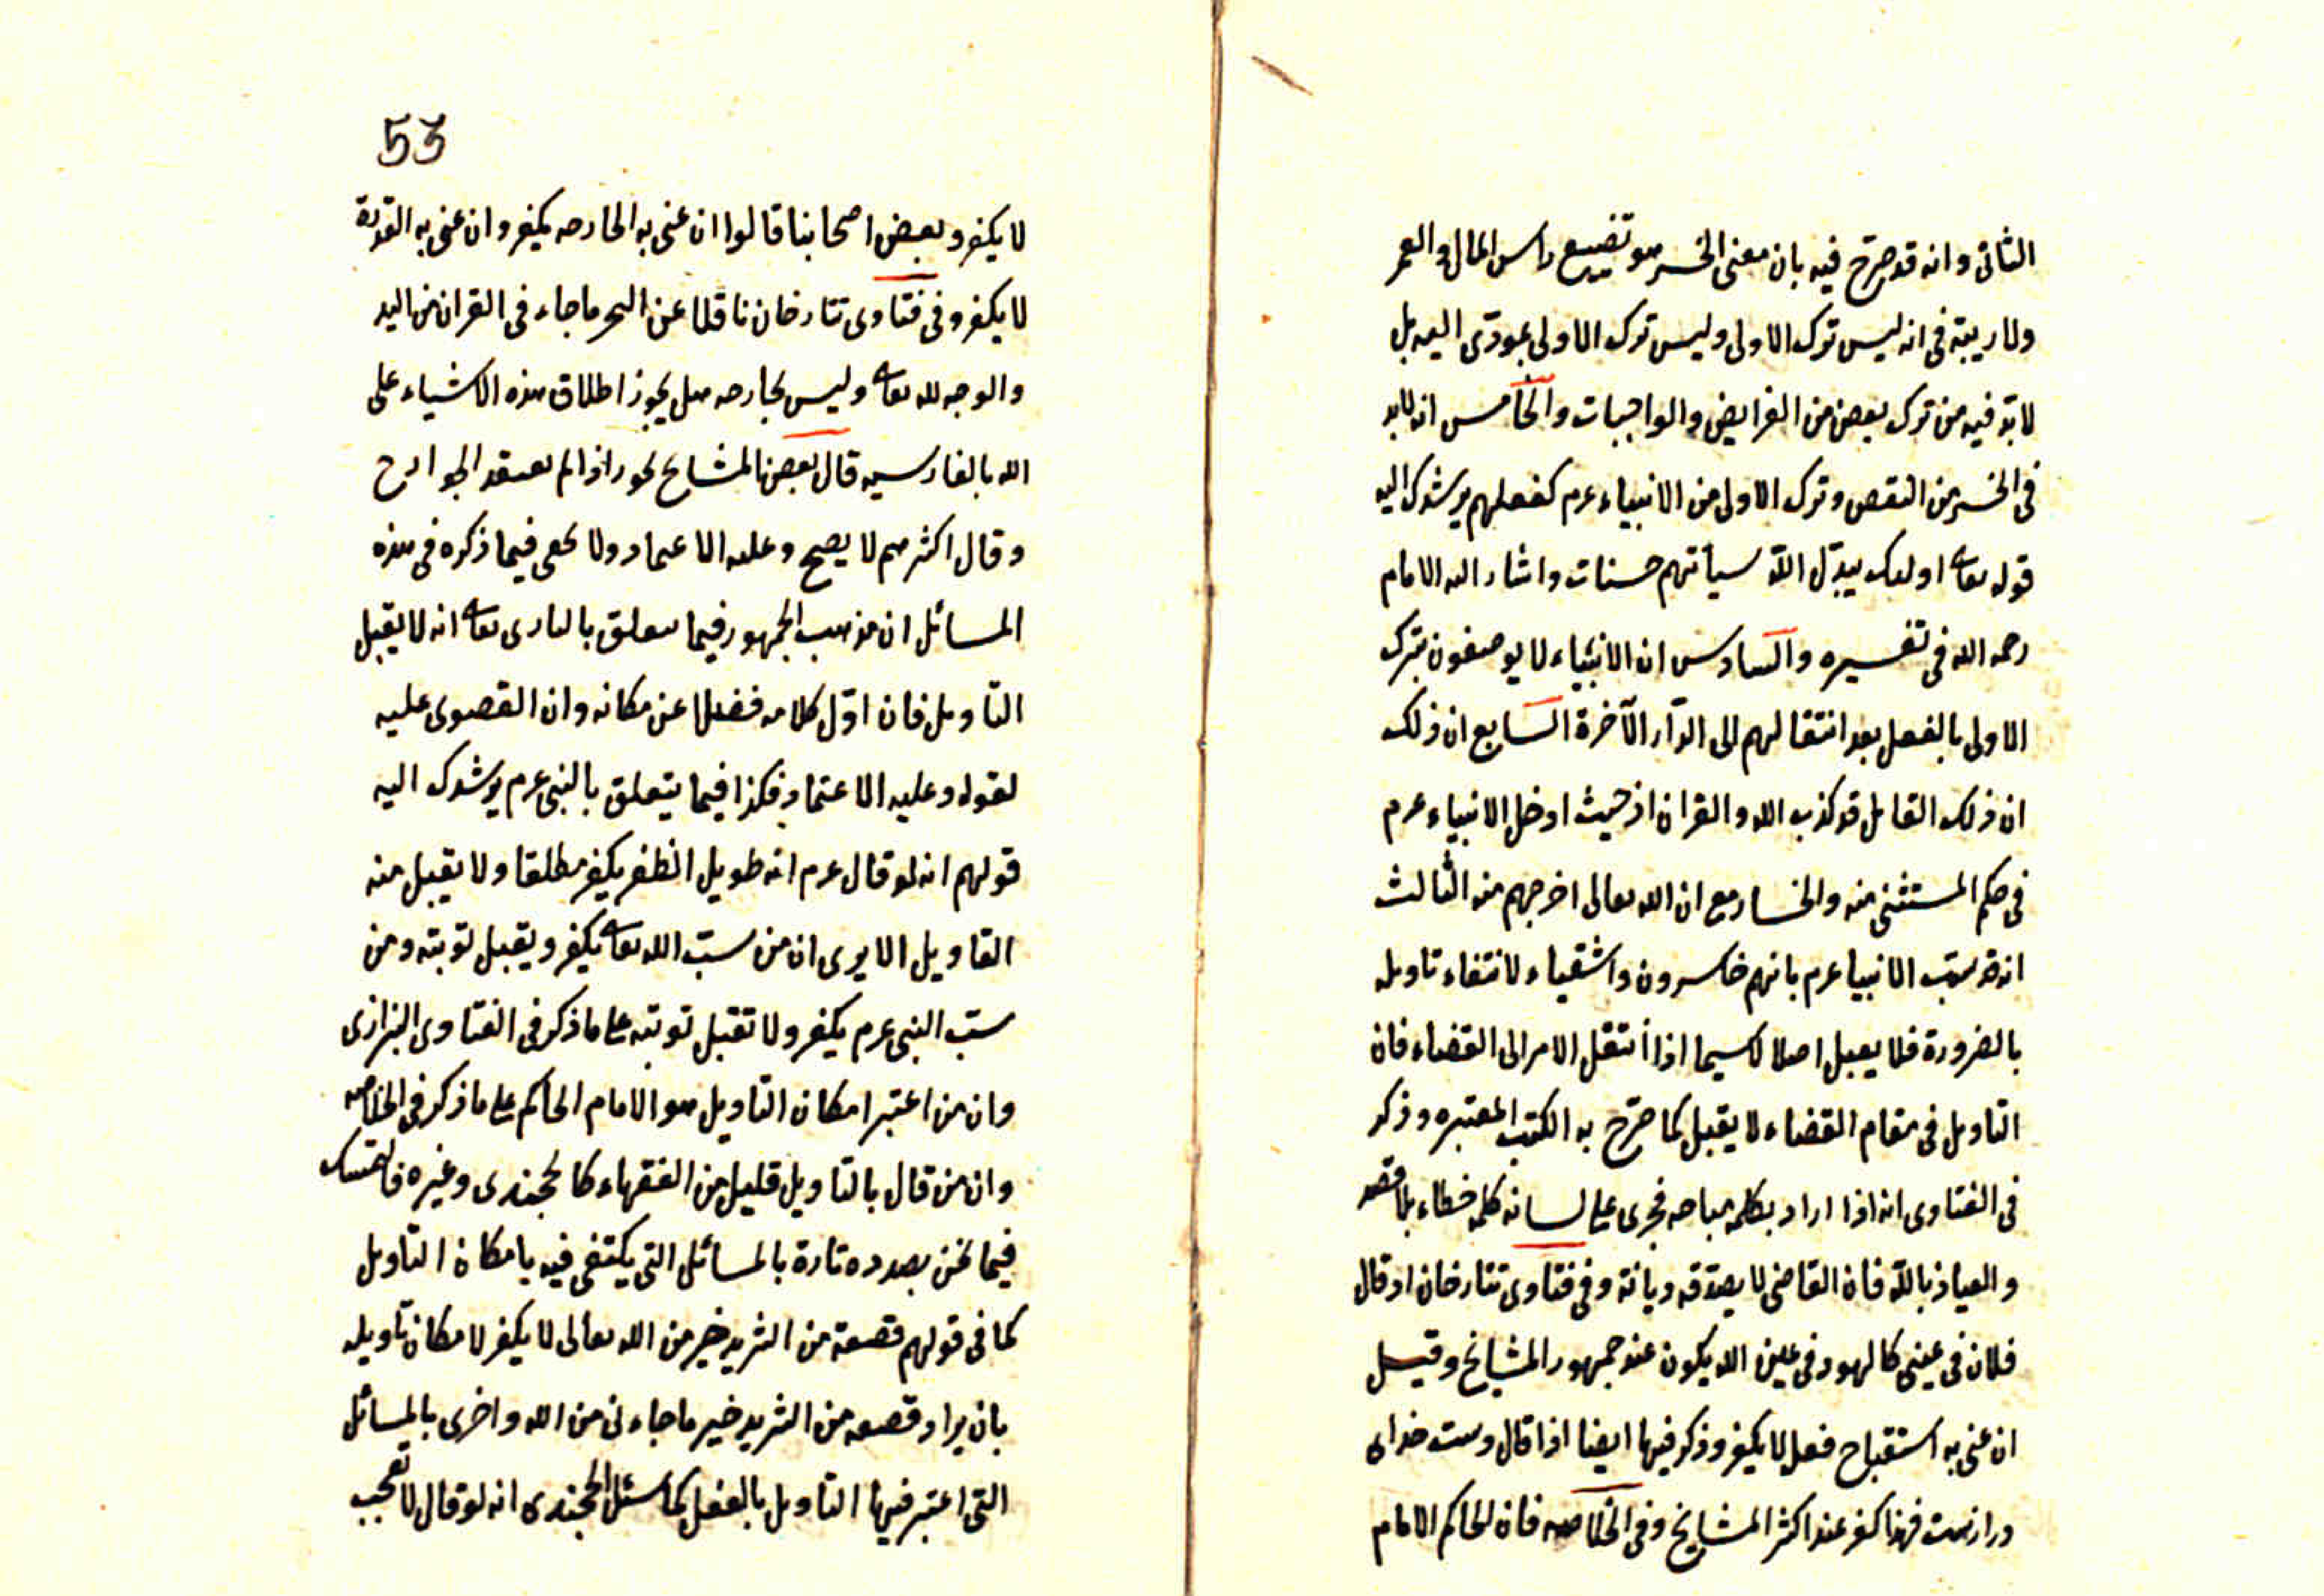 الثانى وانه قد صرّح فيه بان معنى الخسر هو تضييع راس المال والعمر
ولا ريبة فى انه ليس ترك الاولى وليس ترك الاولى بمودّى اليه بل
لا بدّ فيه من ترك بعض من الفرايض والواجبات والخامس انه لابد
فى الخسر من النقص وترك الاولى من الانبياء عرم كفعلهم يرشدك اليه
قوله تعا اولئك يبدّل اللّه سيأتهم حسنات واشار اليه الامام
رحمه الله فى تفسيره والسادس ان الانبياء لا يوصفون بترك
الاولى بالفعل بعد انتقالهم الى الدّار الآخرة السابع ان ذلك
ان ذلك القايل قد كذب الله والقران اذ حيث ادخل الانبياء عرم
فى حكم المستثنى منه والخسار مع ان الله تعالى اخرجهم منه الثالث
انه قد سبّ الانبياء عرم بانهم خاسرون واشقياء لانتفاء تاويله
بالضرورة فلا يقبل اصلا لاسيما اذا أنتقل الامر الى القضاء فان
التاويل فى مقام القضاء لا يقبل كما صرّح به الكتب المعتبره وذكر
فى الفتاوى انه اذا اراد بكلمه مباحه فجرى على لسانه كلمه خطاء بلا قصد
والعياذ باللّه فان القاضى لا يصدّقه ديانة وفى فتاوى تتارخان او قال
فلان فى عينى كاليهود فى عين الله يكون عند جمهور المشايخ وقيل
ان عنى به استقباح فعله لا يكفر وذكر فيها ايضا اذا قال دست خداى
درازست فهذا كفر عند اكثر المشايخ وفى الخلاصه فان الحاكم الامام
53
لا يكفر وبعض اصحابنا قالوا ان عنى به الجارحه يكفر وان عنى به القدرة
لا يكفر وفى فتاوى تتارخان ناقلا عن ما جاء فى القران من اليد
والوجه لله تعا وليس بجارحه هل يجوز اطلاق هذه الاشياء على
الله بالفارسيه قال بعض المشايخ يجوز اذا لم يعتقد الجوارح
وقال اكثرهم لا يصح وعليه الاعتماد ولا يخفى فيما ذكره فى هذه
المسائل ان مذهب الجمهور فيما يتعلق بالبارى تعا انه لا يقبل
التاويل فان اوّل كلامه فضلا عن مكانه وان القصوى عليه
لقوله وعليه الاعتماد فكذا فيما يتعلق بالنبى عرم يرشدك اليه
قولهم انه لو قال عرم انه طويل الظفر يكفر مطلقا ولا يقبل منه
التاويل الا يرى ان من سبّ الله تعا يكفر ويقبل توبته ومن
سبّ النبى عرم يكفر ولا تقبل توبته على ما ذكر فى الفتاوى البزازى
وان من اعتبر امكان التاويل هو الامام الحاكم على ما ذكر فى الخلاصه
وان من قال بالتاويل قليل من الفقهاء كالخجندى وغيره فالتمسك
فيما نحن بصدده تارة بالمسائل التى يكتفى فيه بامكان التاويل
كما فى قولهم قصعة من الثريد خير من الله تعالى لا يكفر لامكان تاويله
بان يراد قصعه من الثريد خير ما جاءنى من الله واخرى بالمسائل
التى اعتبر فيها التاويل بالفعل كما سئل الخجندى انه لو قال لا تعجب